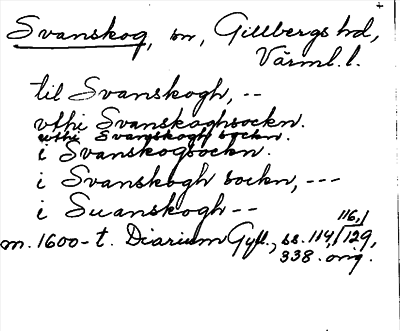 Svanskog, sn, Gillbergs hd,
Värml. l.
til Svanskogh, --
vthi Svanskoghsockn.
uthi Svanskogh sockn.
i Svanskogsockn.
i Svanskogh sockn, ---
i Suanskogh --
116,
m. 1600-t. Diarium Gyll., ss. 114, 129,
338. orig.